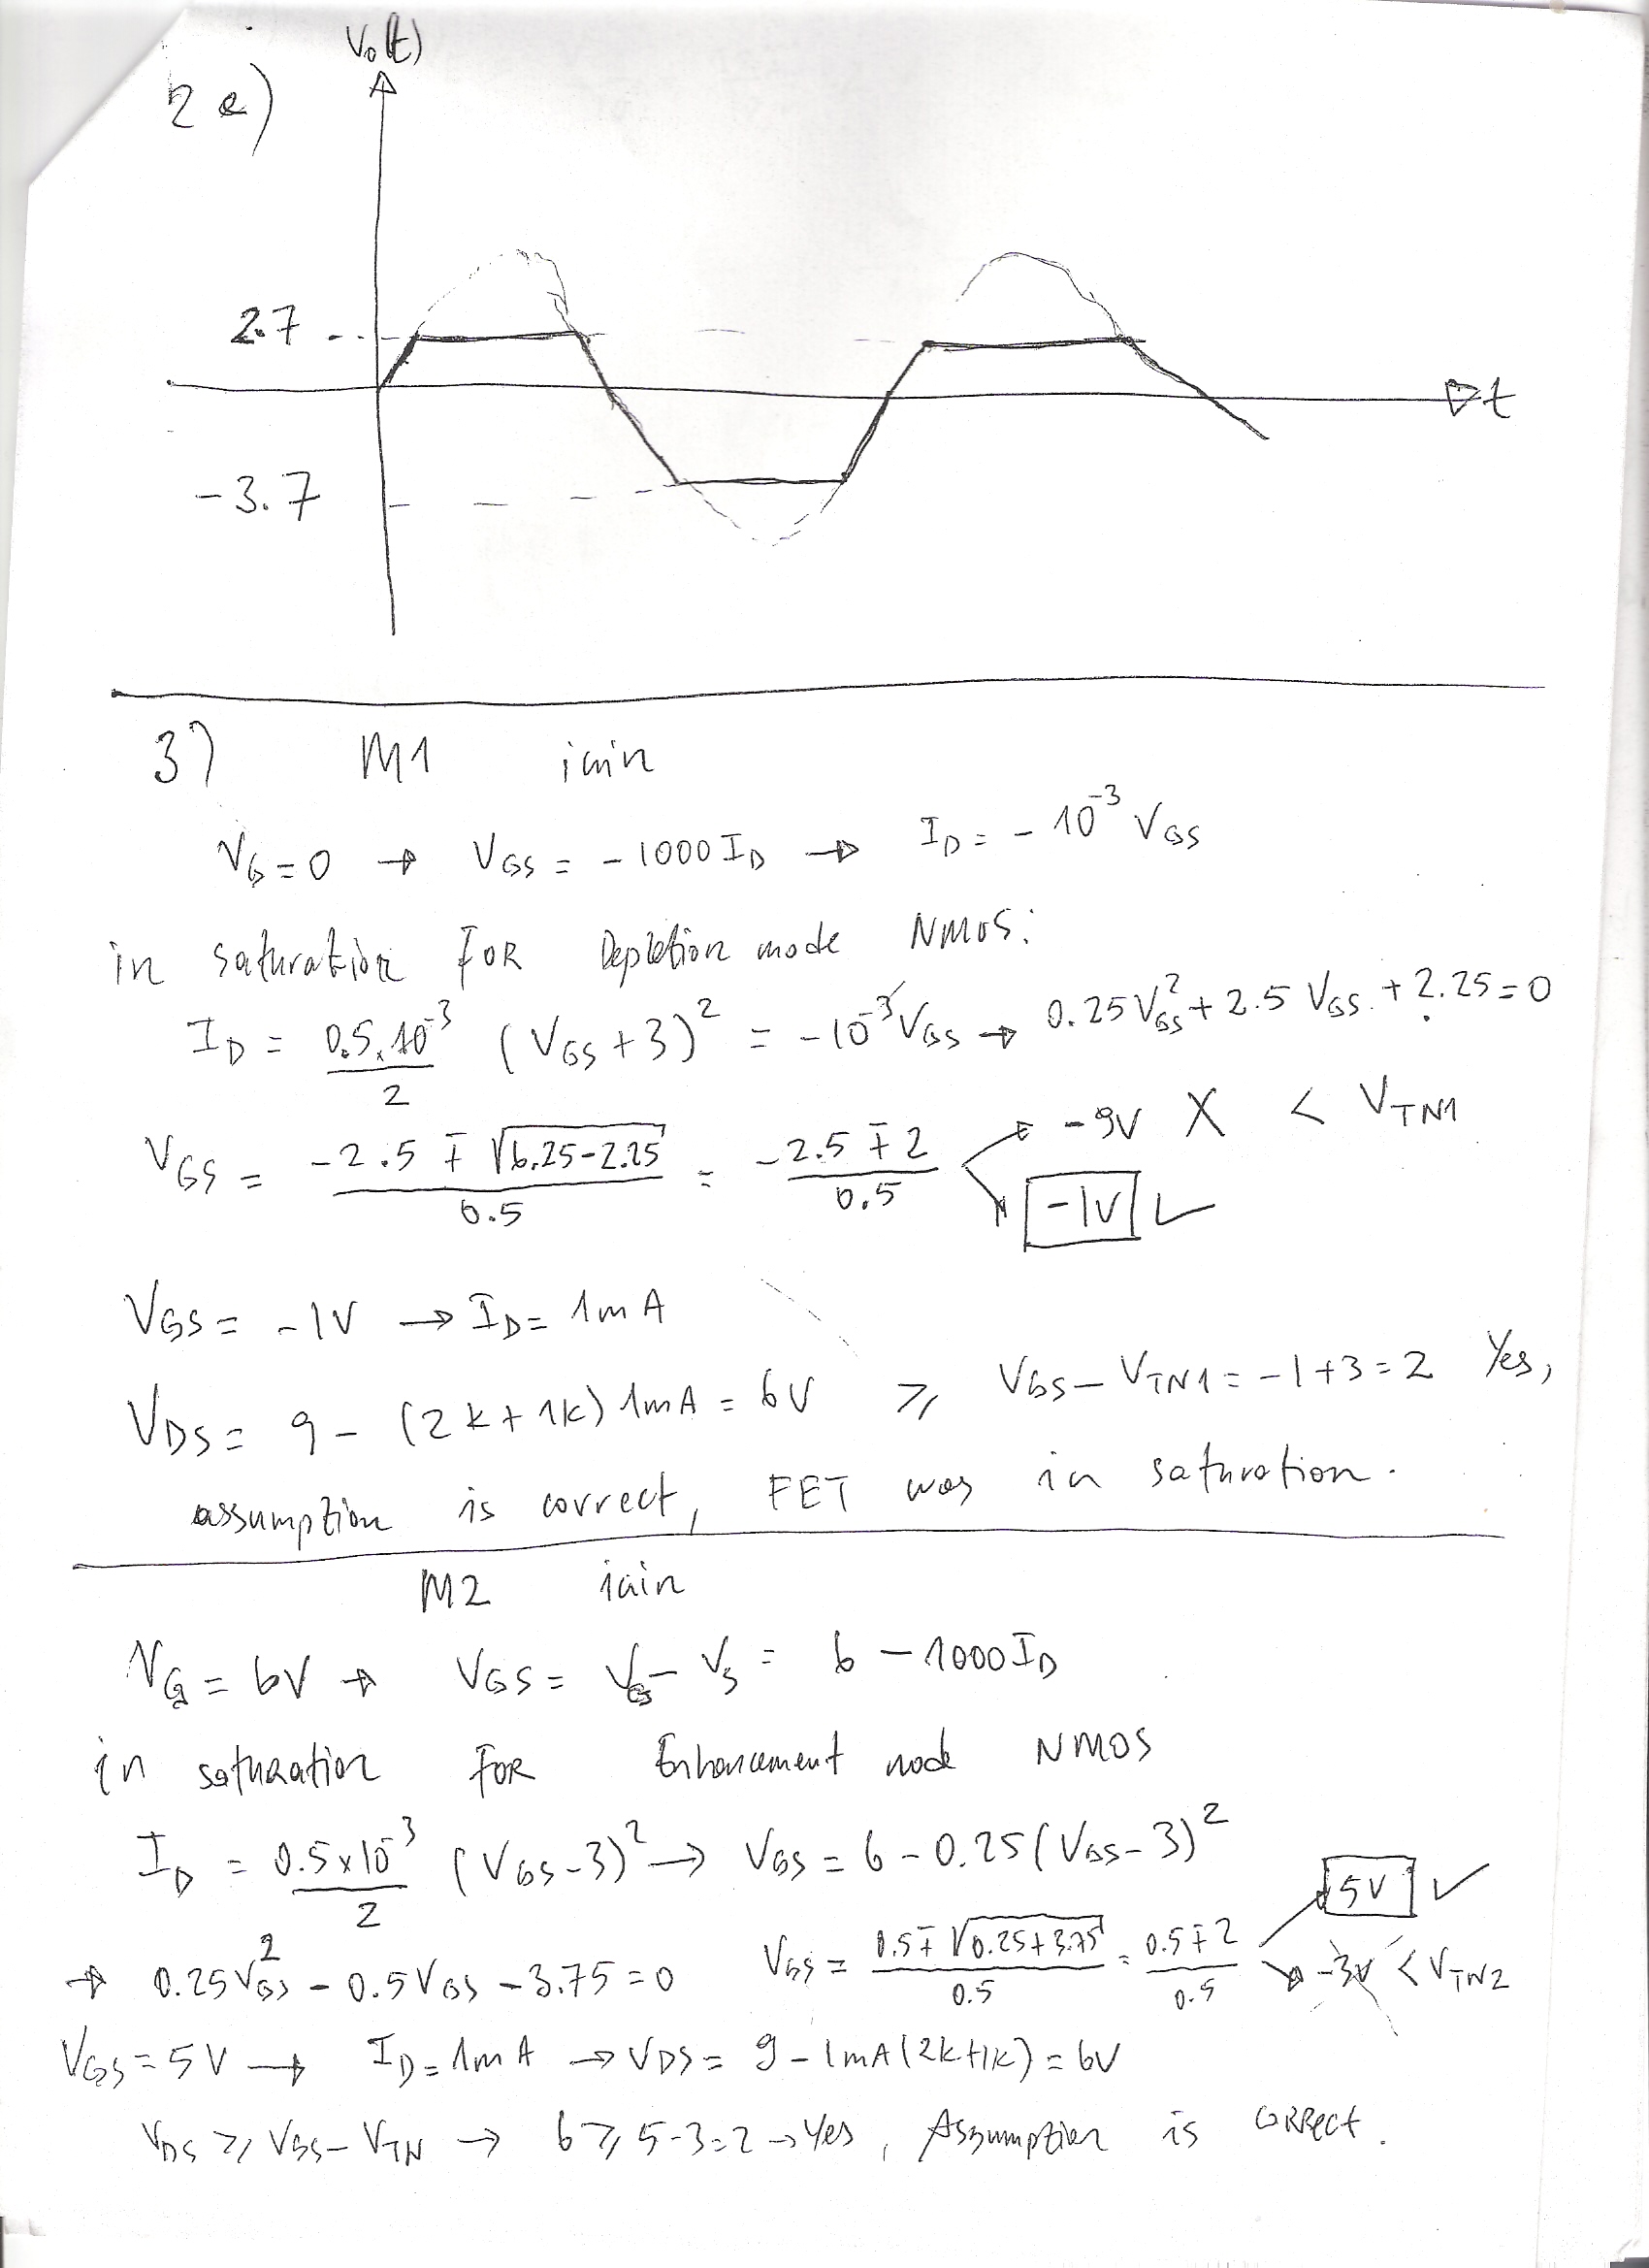 Vo(t)
2e)
2.7
t
-3.7
3) M1 için
VG=0 → VGS = -1000 ID → ID = -10⁻³ VGS
in saturation FOR Depletion mode NMOS:
ID = 0.5×10⁻³/2 (VGS+3)² = -10⁻³VGS → 0.25VGS²+2.5 VGS+2.25=0
VGS = (-2.5 ∓ √(6.25-2.25))/0.5 = (-2.5 ∓ 2)/0.5 → -9V X < VTN1
→ -1V ✓
VGS = -1V → ID = 1mA
VDS = 9 - (2k+1k) 1mA = 6V ≥ VGS-VTN1 = -1+3=2 Yes,
assumption is correct, FET was in saturation.
M2 için
VG=6V → VGS = VG-VS = 6-1000ID
in saturation FOR Enhancement mode NMOS
ID = 0.5×10⁻³/2 (VGS-3)² → VGS = 6-0.25(VGS-3)²
→ 5V ✓
→ 0.25VGS² - 0.5VGS - 3.75=0 VGS = (0.5 ∓ √(0.25+3.75))/0.5 = (0.5 ∓ 2)/0.5 → -3V < VTN2
VGS = 5V → ID = 1mA → VDS = 9-1mA(2k+1k) = 6V
VDS ≥ VGS-VTN → 6 ≥ 5-3=2 → Yes, Assumption is correct.